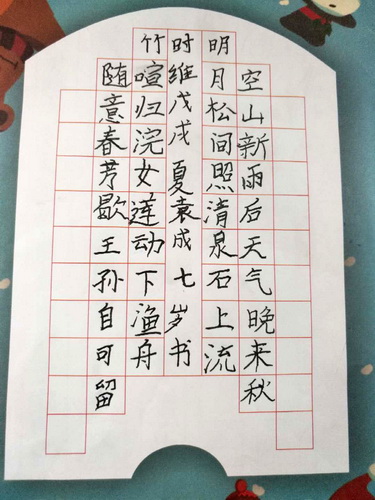 空山新雨后天气晚来秋
明月松间照清泉石上流
时维戊戌 夏袁成 七岁书
竹喧归浣女莲动下渔舟
随意春芳歇王孙自可留